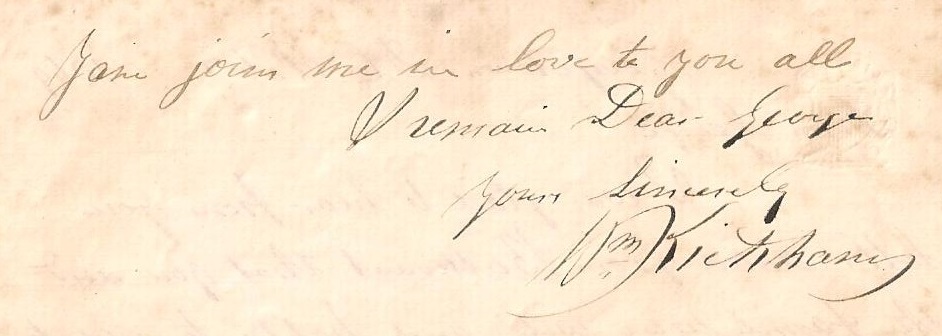 Jane joins me in love to you all
I remain Dear George
Yours Sincerely
Wm Kirkham